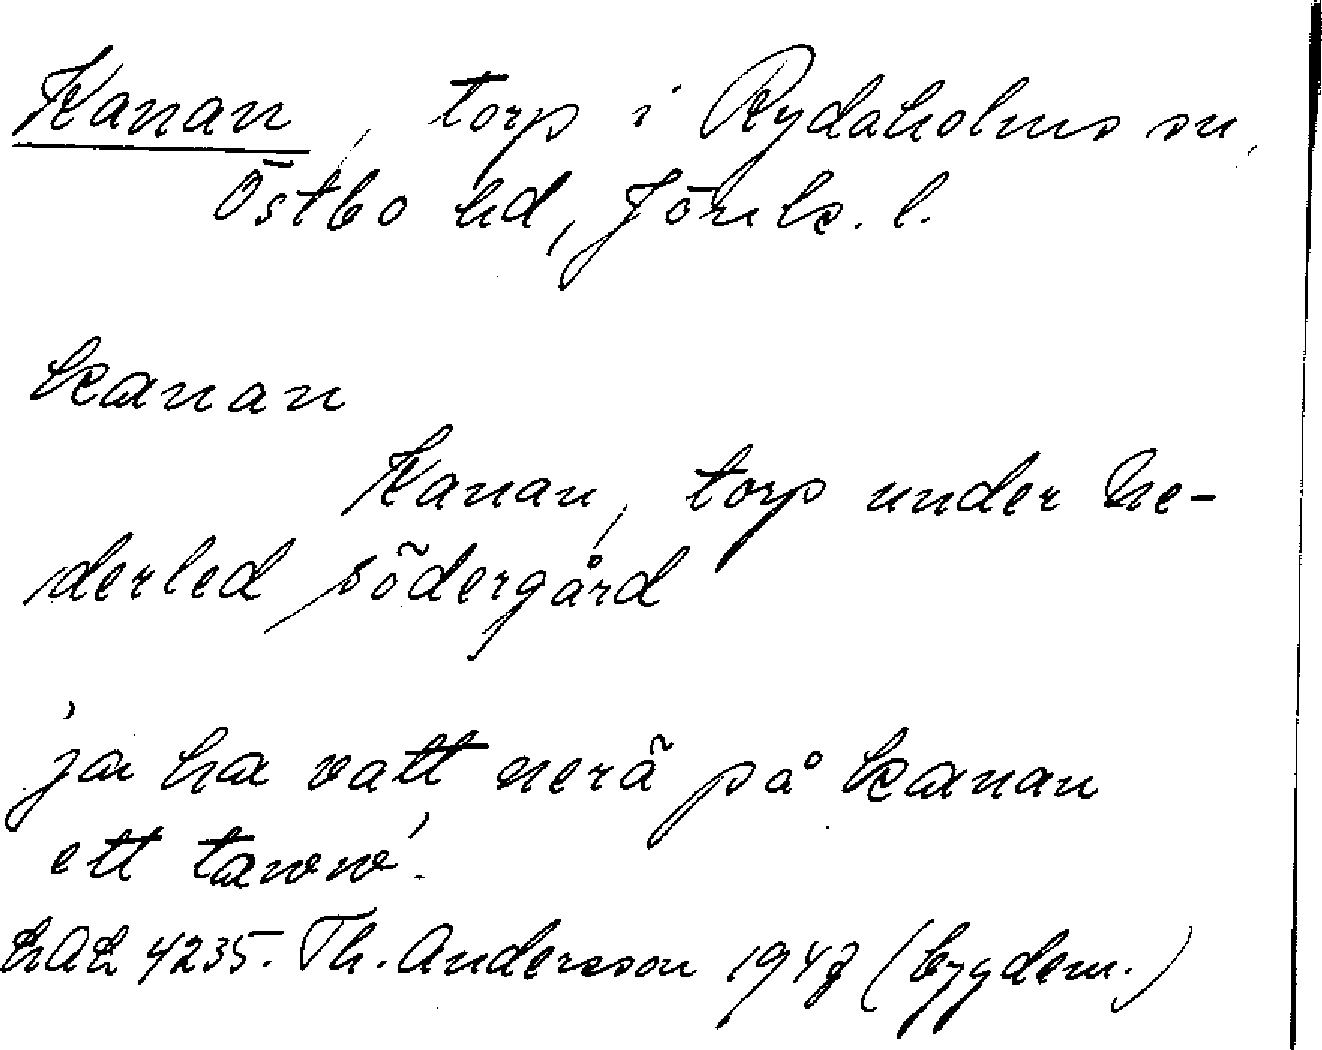 Kanan, torp i Rydaholms sn,
Östbo hd, Jönk. l.
kanan
Kanan, torp under Ne-
derled södergård
'ja ha vatt nerä på kanan
ett taww'.
4235. Th. Andersson 1947 (bygdem.)